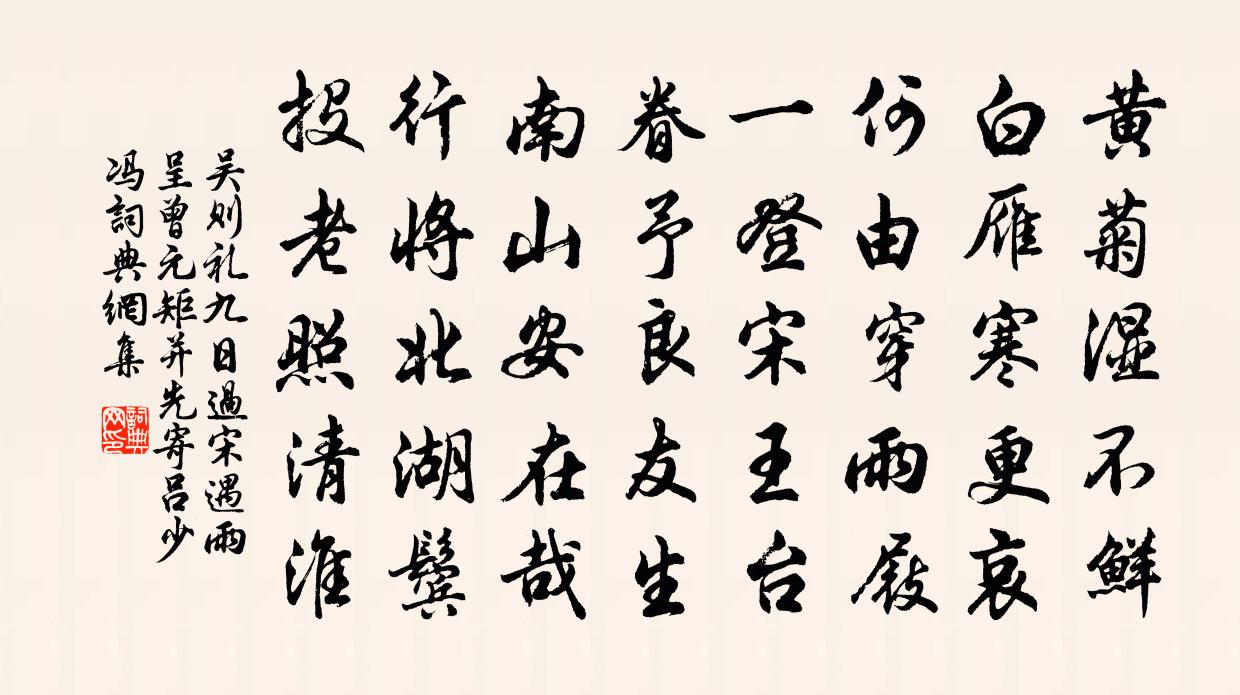 黄菊湿不鲜
白雁寒更哀
何由穿雨屐
一登宋王台
眷予良友生
南山安在哉
行将北湖鬓
投老照清淮
吴则礼九日過宋遇雨
呈曾元矩并先寄吕少
冯詞典網集
詞典网印